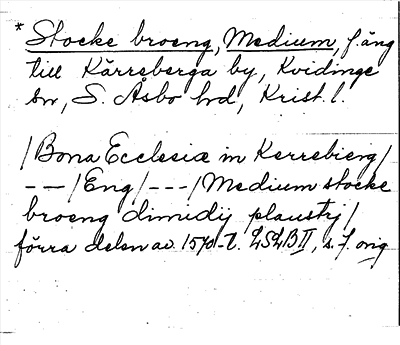 * Stocke broeng, Medium, f. äng
till Kärreberga by, Kvidinge
sn, S. Åsbo hd, Krist. l.
/Bona Ecclesiæ in Kerrebierg/
-- /Eng/ --- /Medium stocke
broeng dimidij plaustrj/
förra delen av 1570-t. LSLB II, s. 7. orig